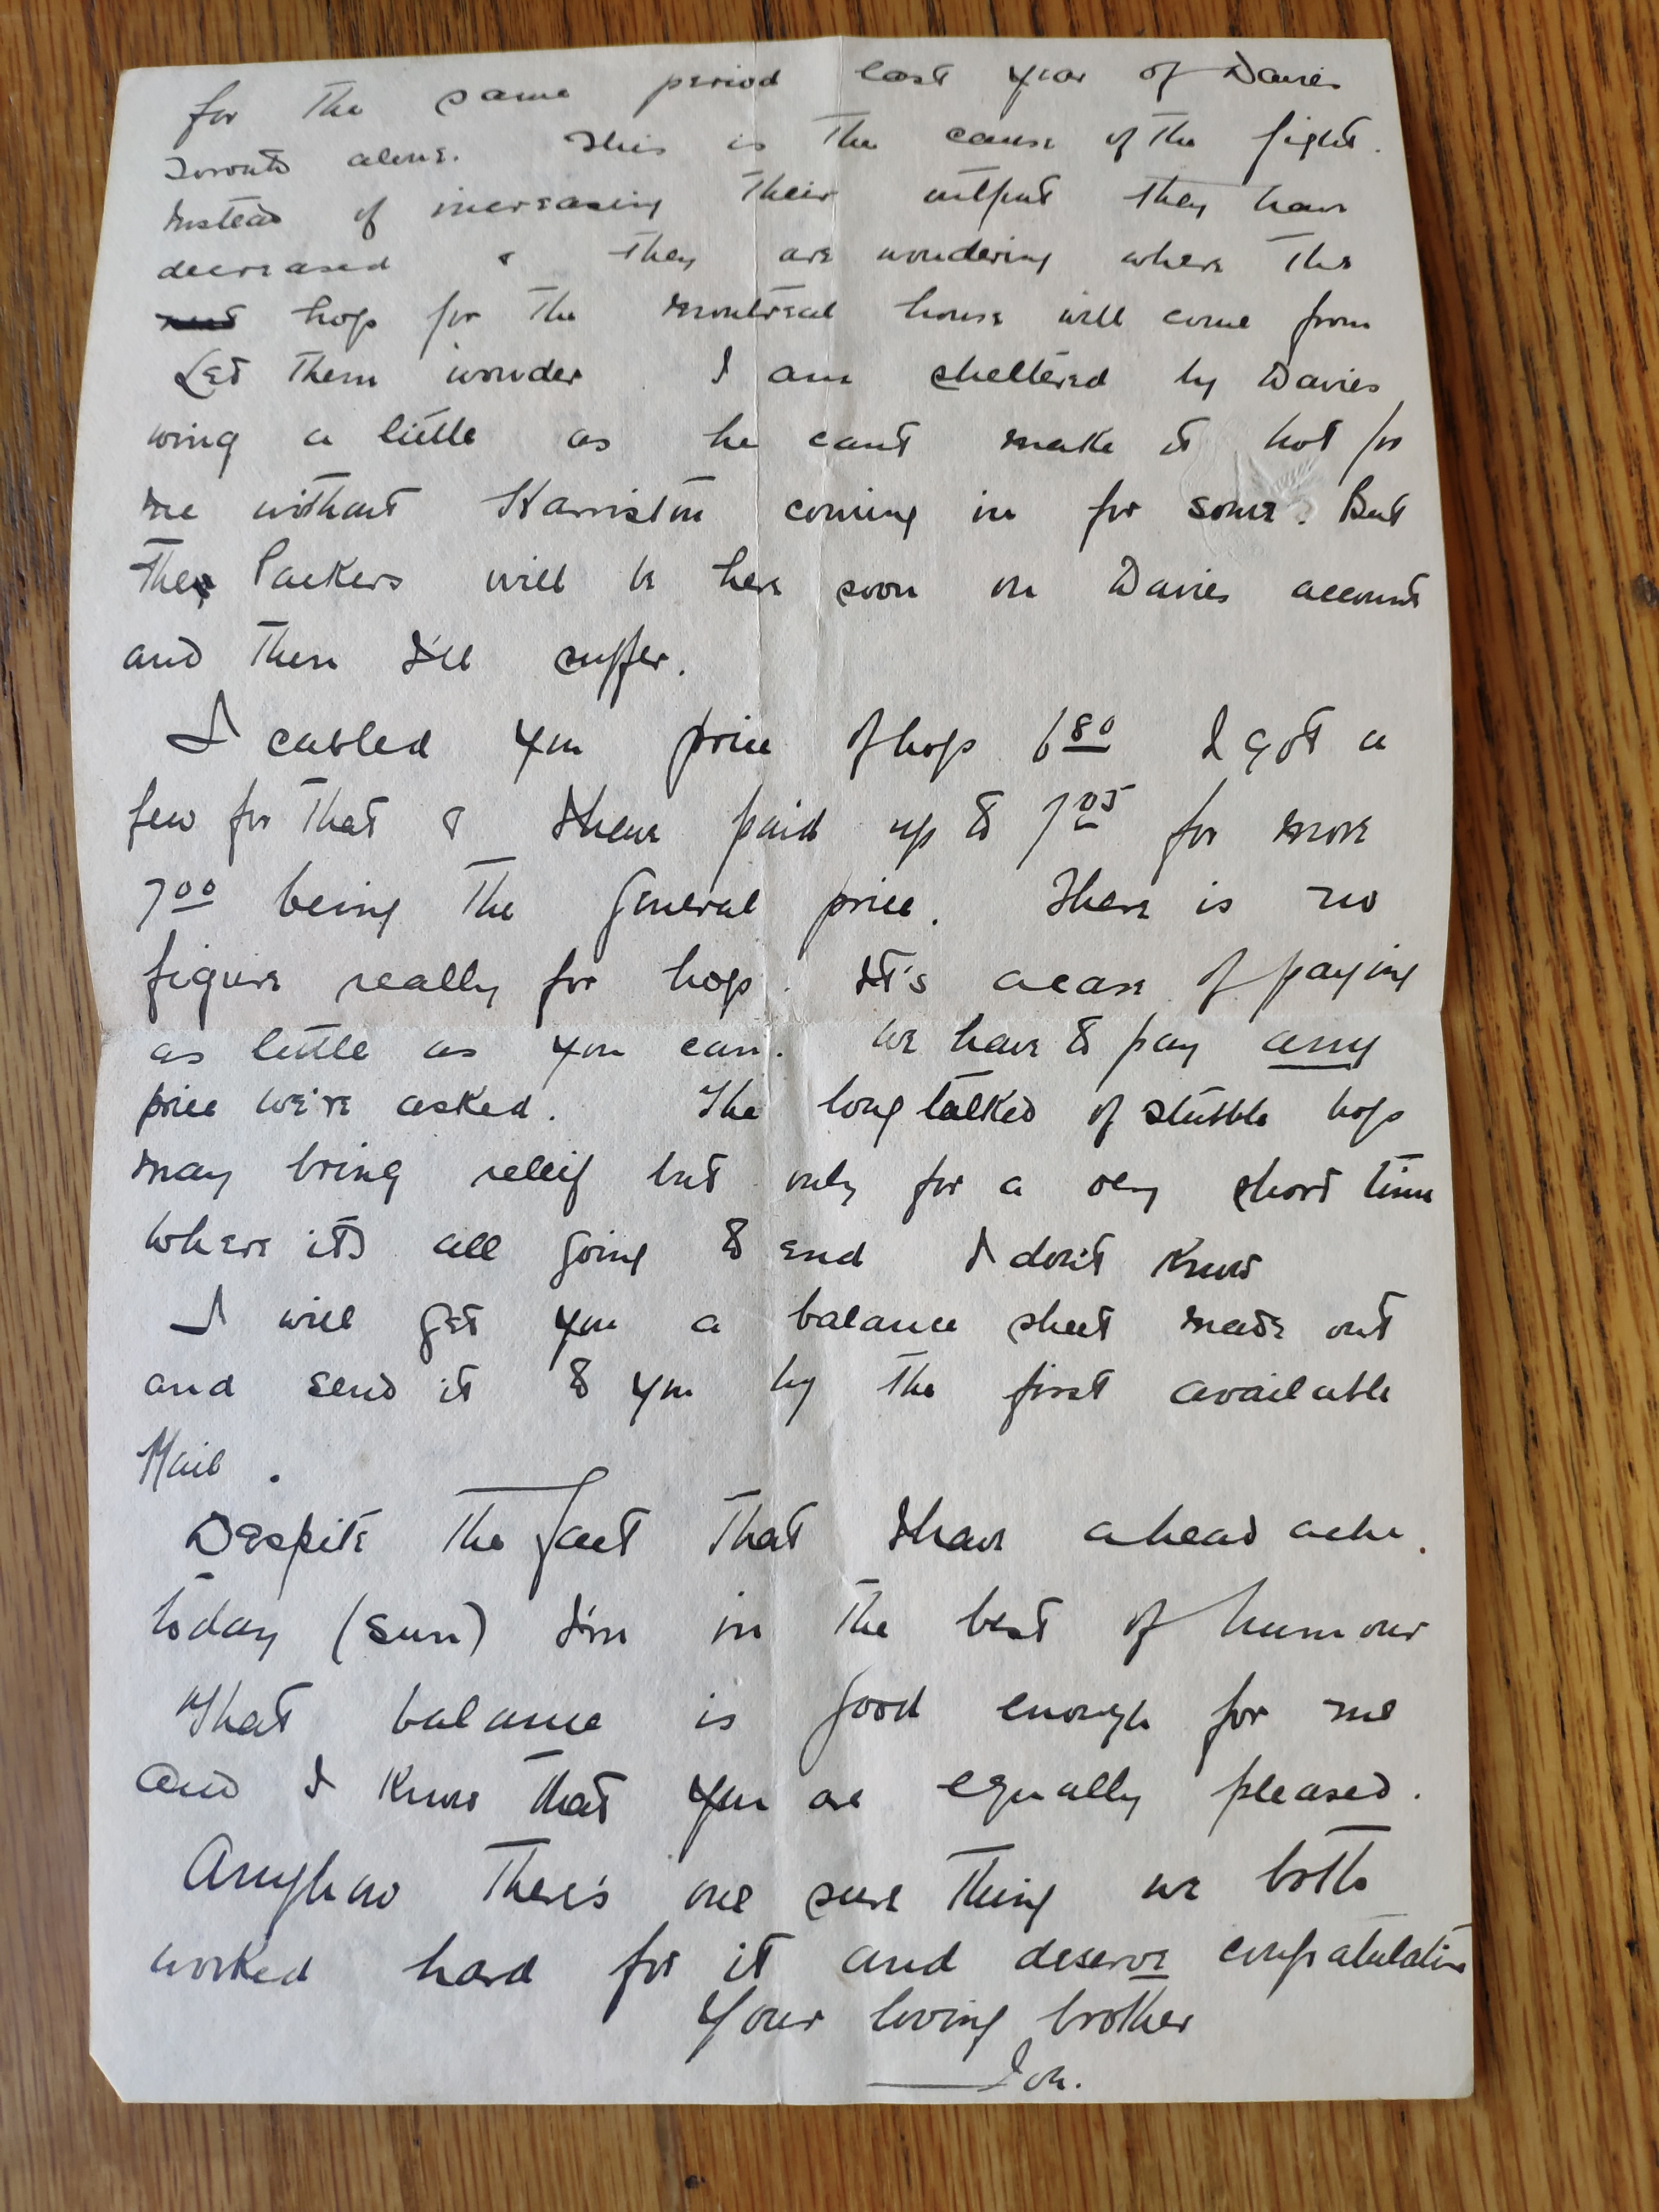 for the same period last year of Davies
Toronto alone. This is the cause of the fight.
Instead of increasing their output they have
decreased & they are wondering where the
hogs for the Montreal house will come from
Let them wonder. I am sheltered by Davies
wing a little as he cant make it hot for
me without Harriston coming in for some. But
the Packers will be here soon on Davies account
and then I'll suffer.
I cabled you price of hogs 6 80 I got a
few for that & I have paid up to 7 05 for more
7 00 being the general price. There is no
figure really for hogs. It's a case of paying
as little as you can. We have to pay any
price we're asked. The long talked of stubble hogs
may bring releif but only for a very short time
where its all going to end I don't know
I will get you a balance sheet made out
and send it to you by the first available
Mail.
Despite the fact that I have a head ache.
today (sun) I'm in the best of humour
That balance is good enough for me
and I know that you are equally pleased.
Anyhow there's one sure thing we both
worked hard for it and deserve congratulation
Your loving brother